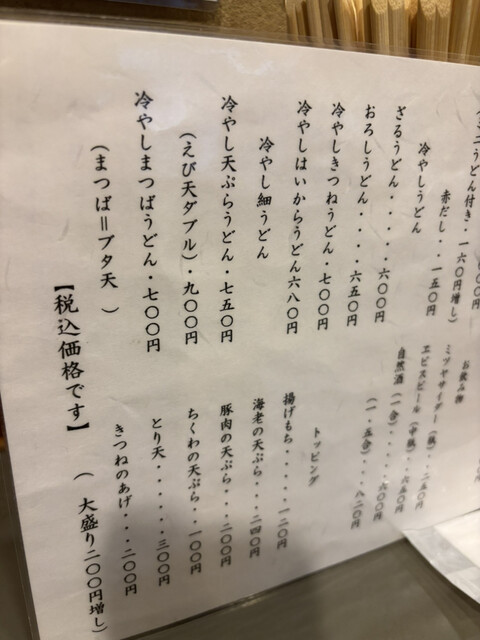 (ミニうどん付き・一六〇円増し)
赤だし・・・一五〇円
冷やしうどん
ざるうどん・・・・・六〇〇円
おろしうどん・・・・六五〇円
冷やしきつねうどん・七〇〇円
冷やしはいからうどん六八〇円
冷やし細うどん
冷やし天ぷらうどん・七五〇円
(えび天ダブル)・九〇〇円
冷やしまつばうどん・七〇〇円
(まつば=ブタ天 )
お飲み物
ミツヤサイダー(瓶)・・二五〇円
ヱビスビール(中瓶)・・六五〇円
自然酒(一合)・・・六〇〇円
(一・五合)・・・八二〇円
トッピング
揚げもち・・・・・一二〇円
海老の天ぷら・・・二四〇円
豚肉の天ぷら・・・二〇〇円
ちくわの天ぷら・・一〇〇円
とり天・・・・・・三〇〇円
きつねのあげ・・・二〇〇円
【税込価格です】
( 大盛り二〇〇円増し)